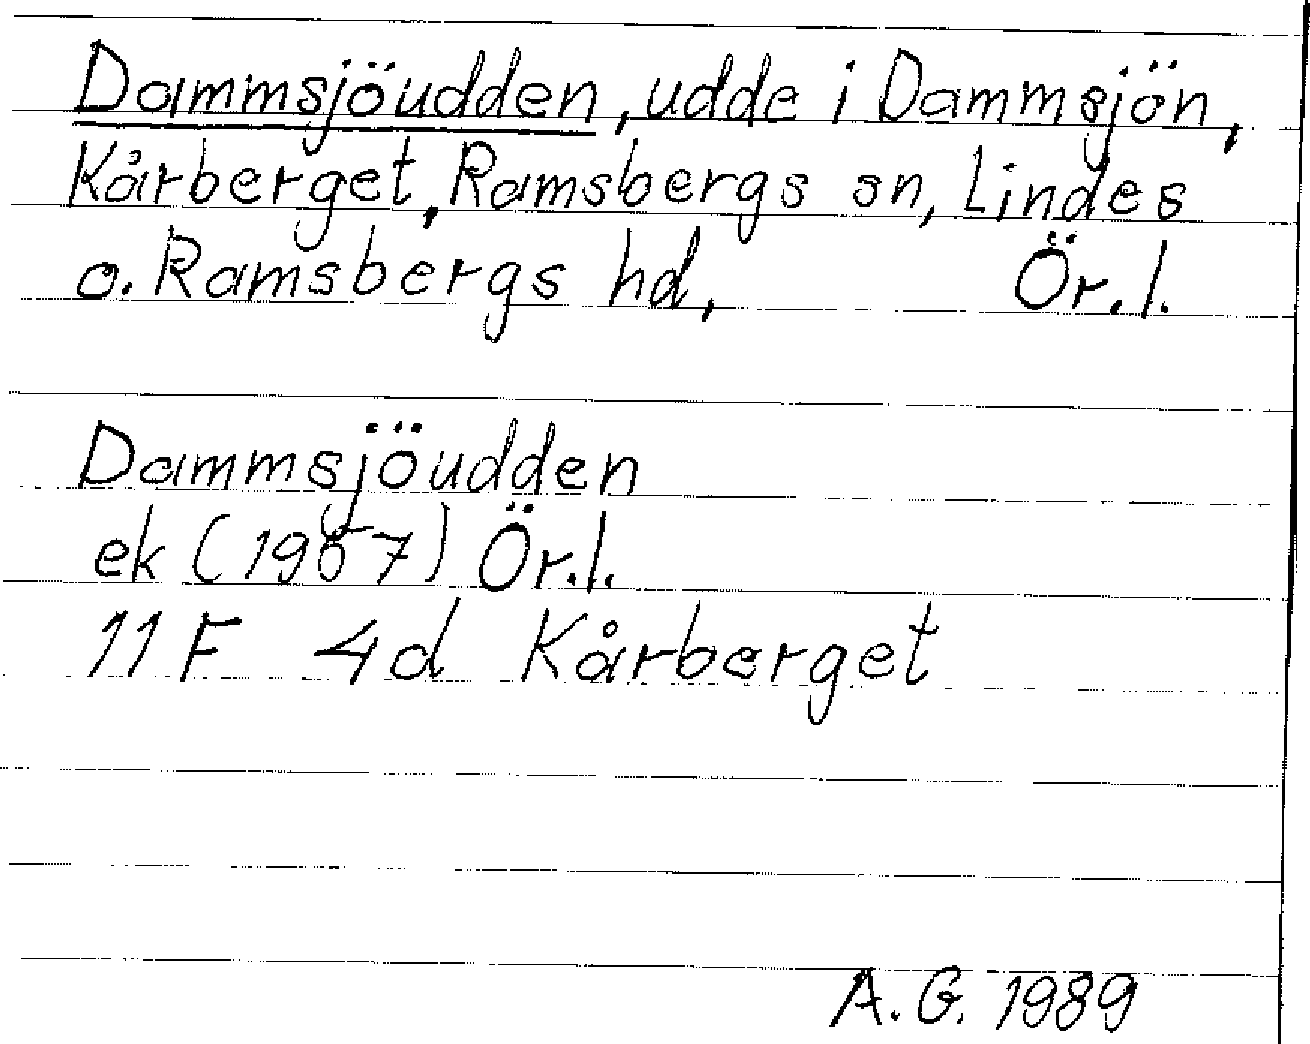 Dammsjöudden, udde i Dammsjön,
Kårberget, Ramsbergs sn, Lindes
o. Ramsbergs hd, Ör. l.
Dammsjöudden
ek (1967) Ör. l.
11 F 4d Kårberget
A. G. 1989